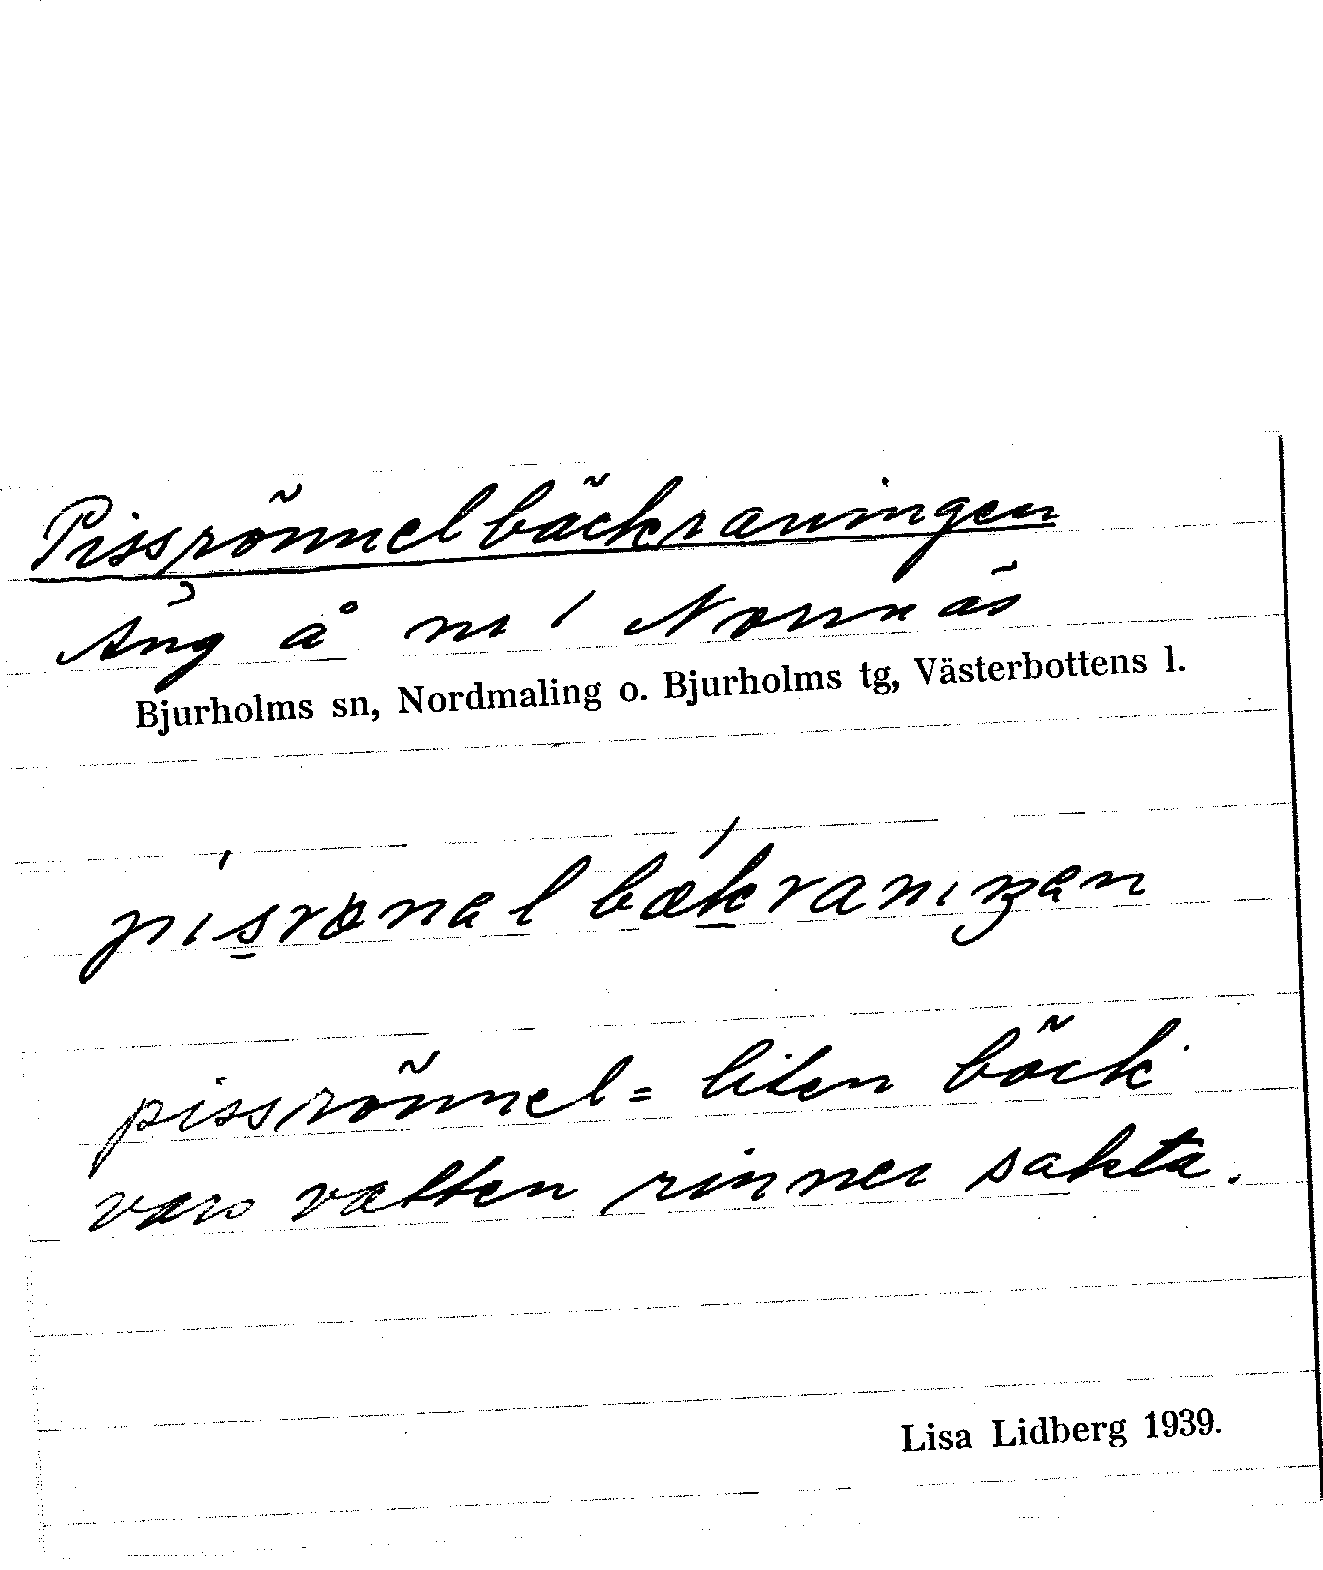 Pissrönnelbäckraningen
Äng å nr 1 Nornäs
Bjurholms sn, Nordmaling o. Bjurholms tg, Västerbottens l.
pissrönnel = liten bäck
vars vatten rinner sakta.
Lisa Lidberg 1939.